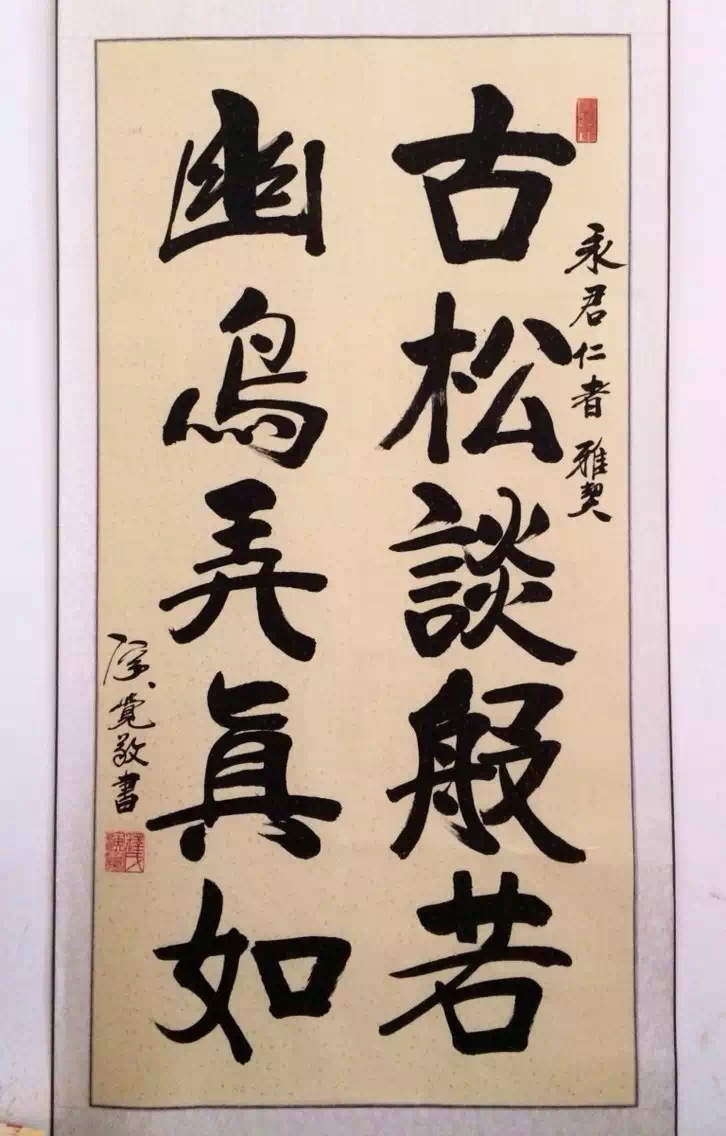 永君仁者 雅契
古松談般若
幽鳥弄真如
演覺敬書